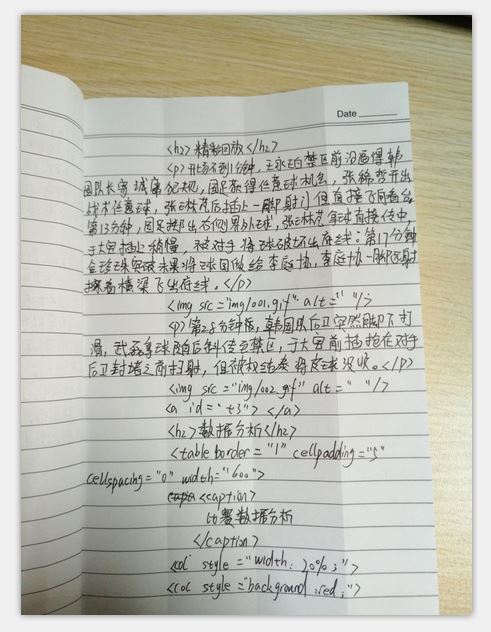 Date
<h2>精彩回放</h2>
<p>开场不到1分钟，王永珀禁区前沿逼得韩
国队长宽 城 犯规，国足获得任意球机会，张稀哲开出
战术任意球，张琳芃后插上一脚射门但直接飞向看台
第13分钟，国足掷出右侧界外球，张琳芃拿球直接传中，
于大宝插上稍慢，被对手将球破坏出底线；第17分钟
突破未果将球回做给李庭协，李庭协一脚远射
擦着横梁飞出底线。</p>
<img src="img/001.gif" alt=" "/>
<p>第28分钟，韩国队后卫突然脚下打
滑，武磊拿球随后斜传至禁区，于大宝前插抢在对手
后卫封堵之前打射，但被 将皮球没收。</p>
<img src="img/002.gif" alt=" "/>
<a id="t3"></a>
<h2>数据分析</h2>
<table border="1" cellpadding="5"
cellspacing="0" width="600">
<caption>
比赛数据分析
</caption>
<col style="width: 20%;">
<col style="background:red;">